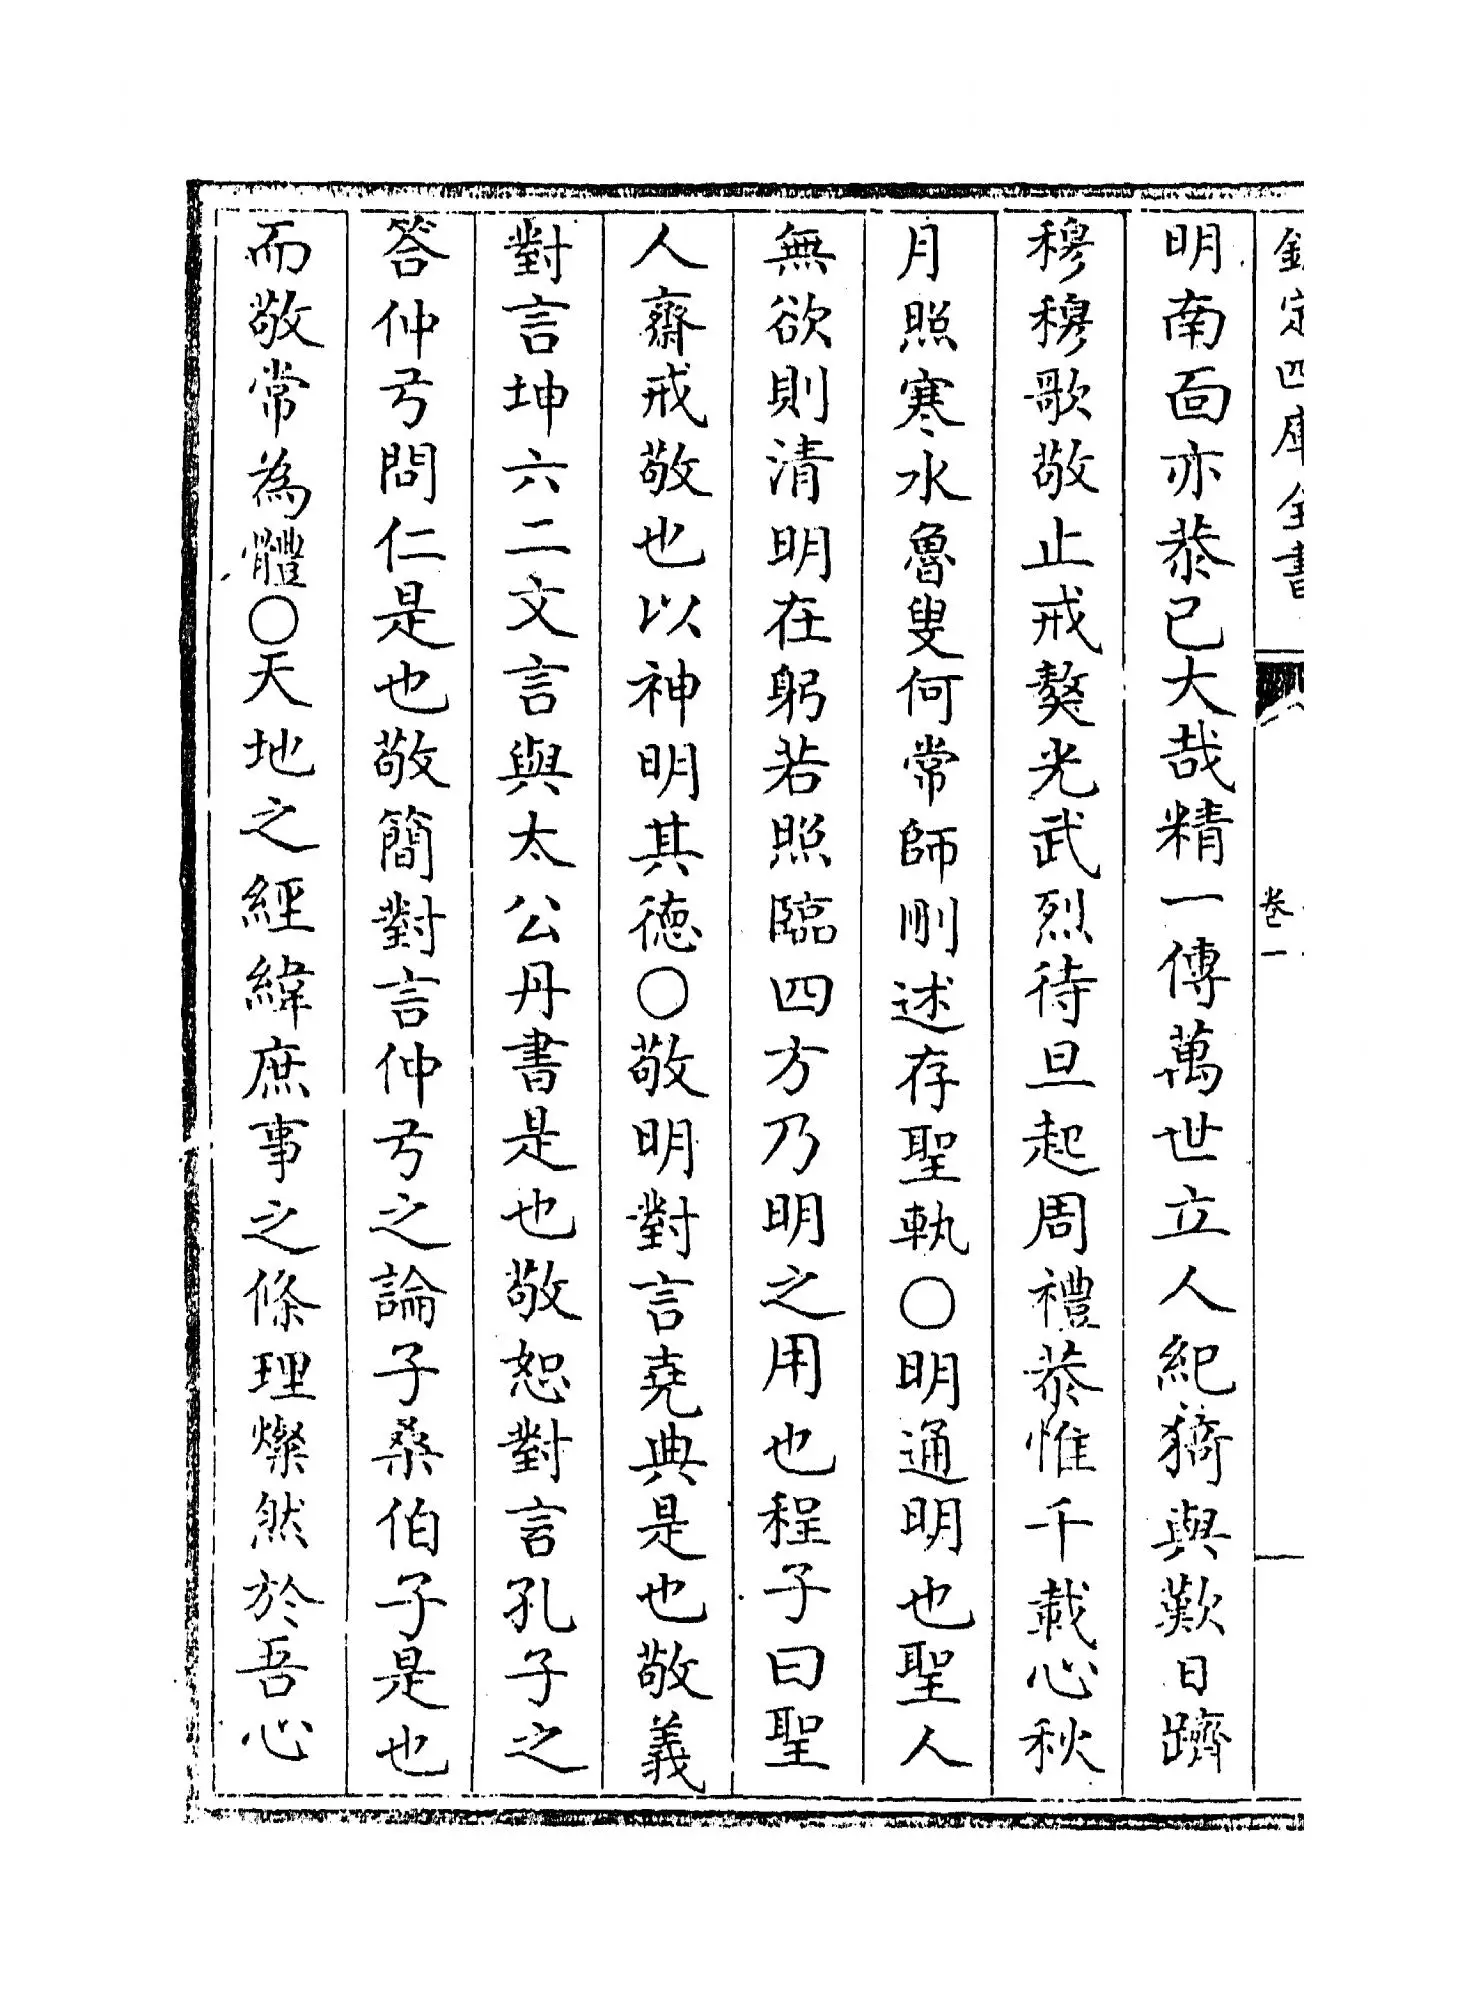 欽定四庫全書
卷一
明南面亦恭已大哉精一傳萬世立人紀猗與歎日躋
穆穆歌敬止戒獒光武烈待旦起周禮恭惟千載心秋
月照寒水魯叟何常師刪述存聖軌〇明通明也聖人
無欲則清明在躬若照臨四方乃明之用也程子曰聖
人齋戒敬也以神明其德〇敬明對言堯典是也敬義
對言坤六二文言與太公丹書是也敬恕對言孔子之
答仲弓問仁是也敬簡對言仲弓之論子桑伯子是也
而敬常為體〇天地之經緯庶事之條理燦然於吾心